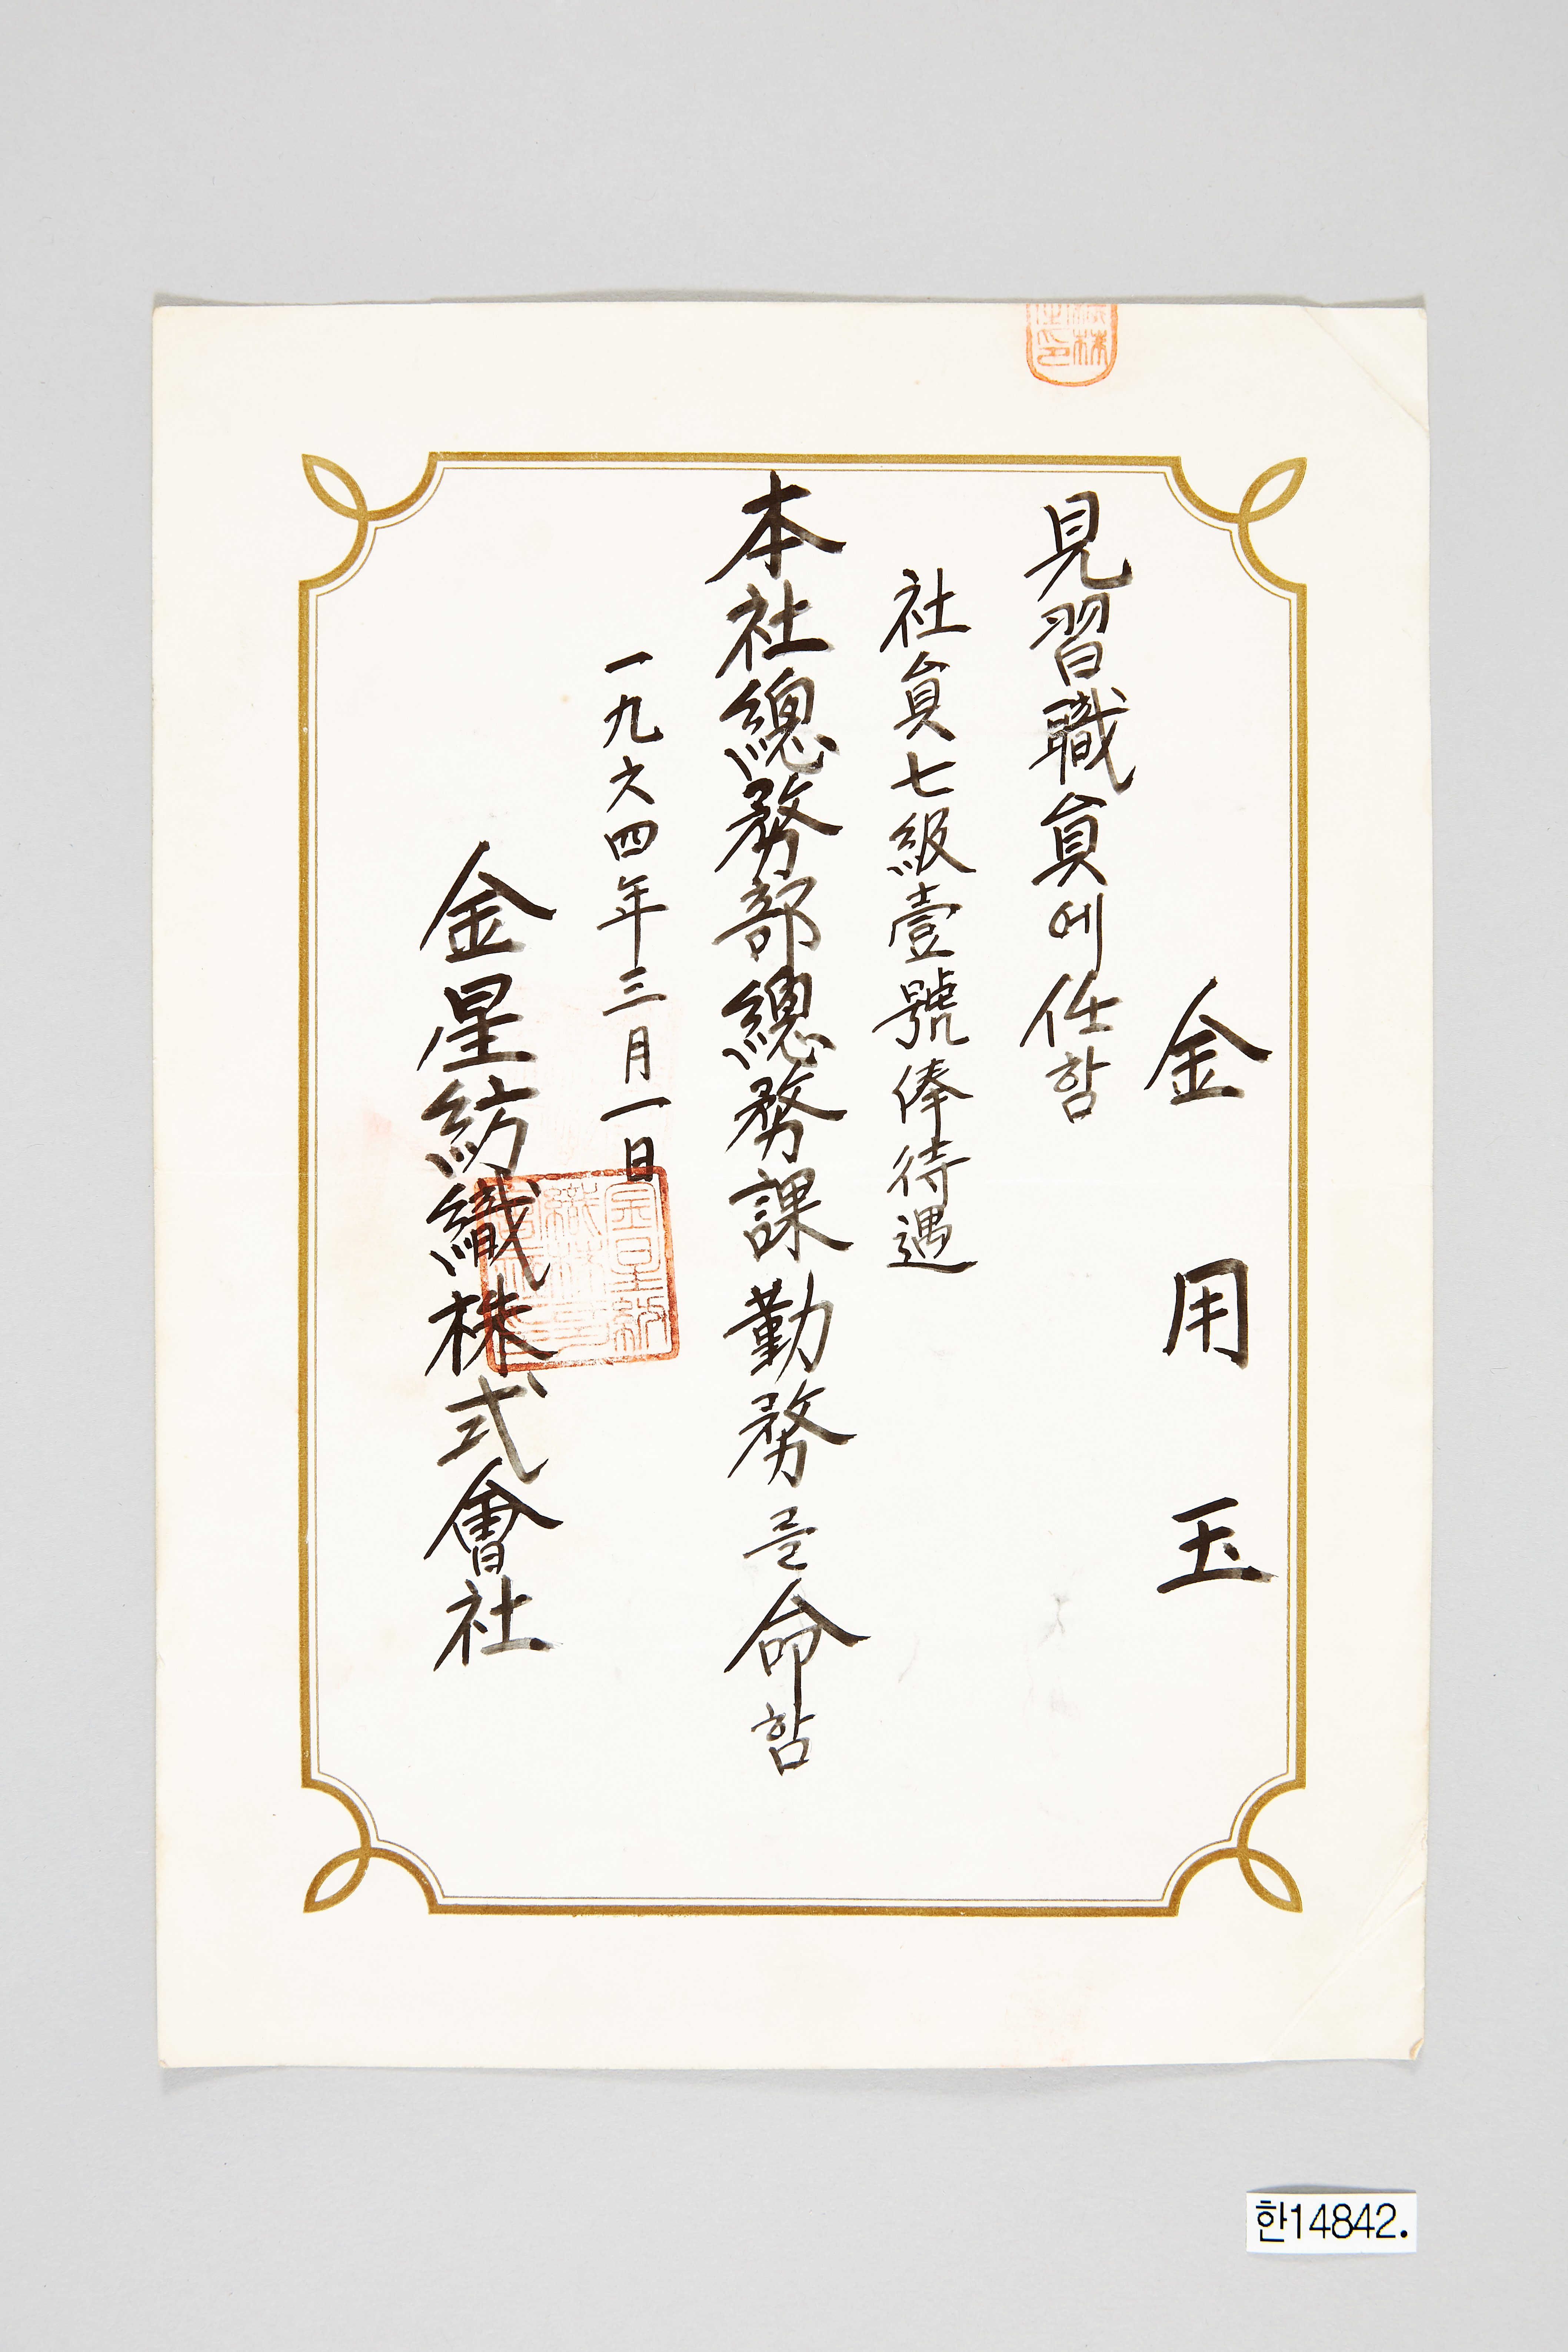 金用玉
見習職員에任함
社員七級壹號俸待遇
本社總務部總務課勤務를命함
一九六四年三月一日
金星紡織株式會社
한14842.